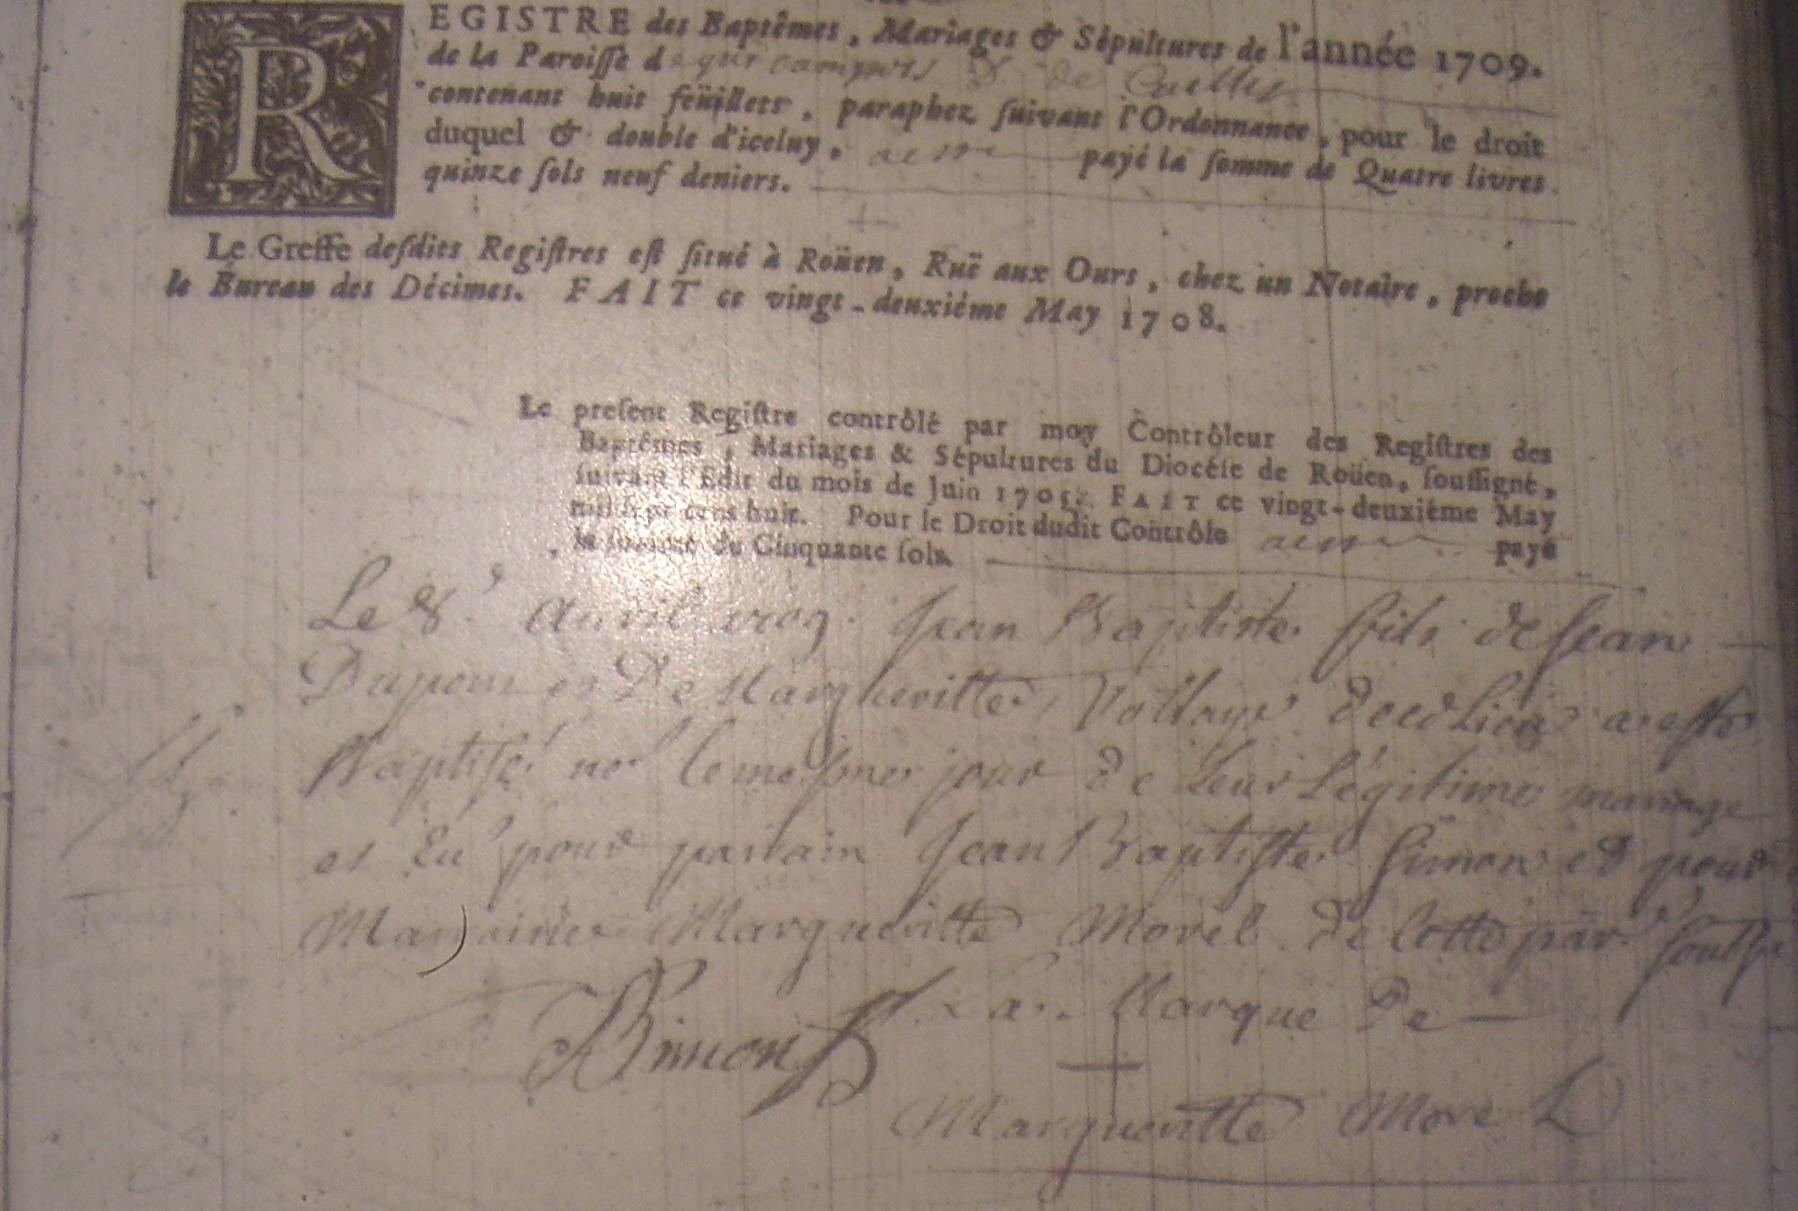 REGISTRE des Baptêmes, Mariages & Sépultures de l'année 1709.
de la Paroisse de quincampois & de Cailly
contenant huit feüillets, paraphez suivant l'Ordonnance, pour le droit
duquel & double d'iceluy, payé la somme de Quatre livres
quinze sols neuf deniers.
Le Greffe desdits Registres est situé à Roüen, Ruë aux Ours, chez un Notaire, proche
le Bureau des Décimes. FAIT ce vingt-deuxiéme May 1708.
Le present Registre contrôlé par moy Contrôleur des Registres des
Baptêmes, Mariages & Sépultures du Diocése de Roüen, soussigné,
suivant l'Edit du mois de Juin 1705. FAIT ce vingt-deuxiéme May
mil sept cens huit. Pour le Droit dudit Contrôle payé
la somme de Cinquante sols.
Le 8e Avril 1709 Jean Baptiste fils de Jean
et De Margueritte de ce Lieu a esté
Baptisé né le mesme jour de Leur Légitime mariage
et Eu pour parrain Jean Baptiste Simon et pour
Marraine Margueritte Morel de cette par
Simon La Marque De
Margueritte MoreL